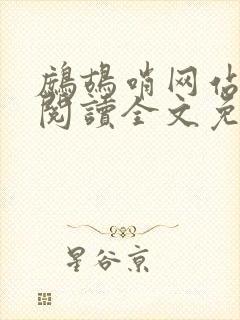 鷓鴣哨网估
閱讀全文免
星谷京